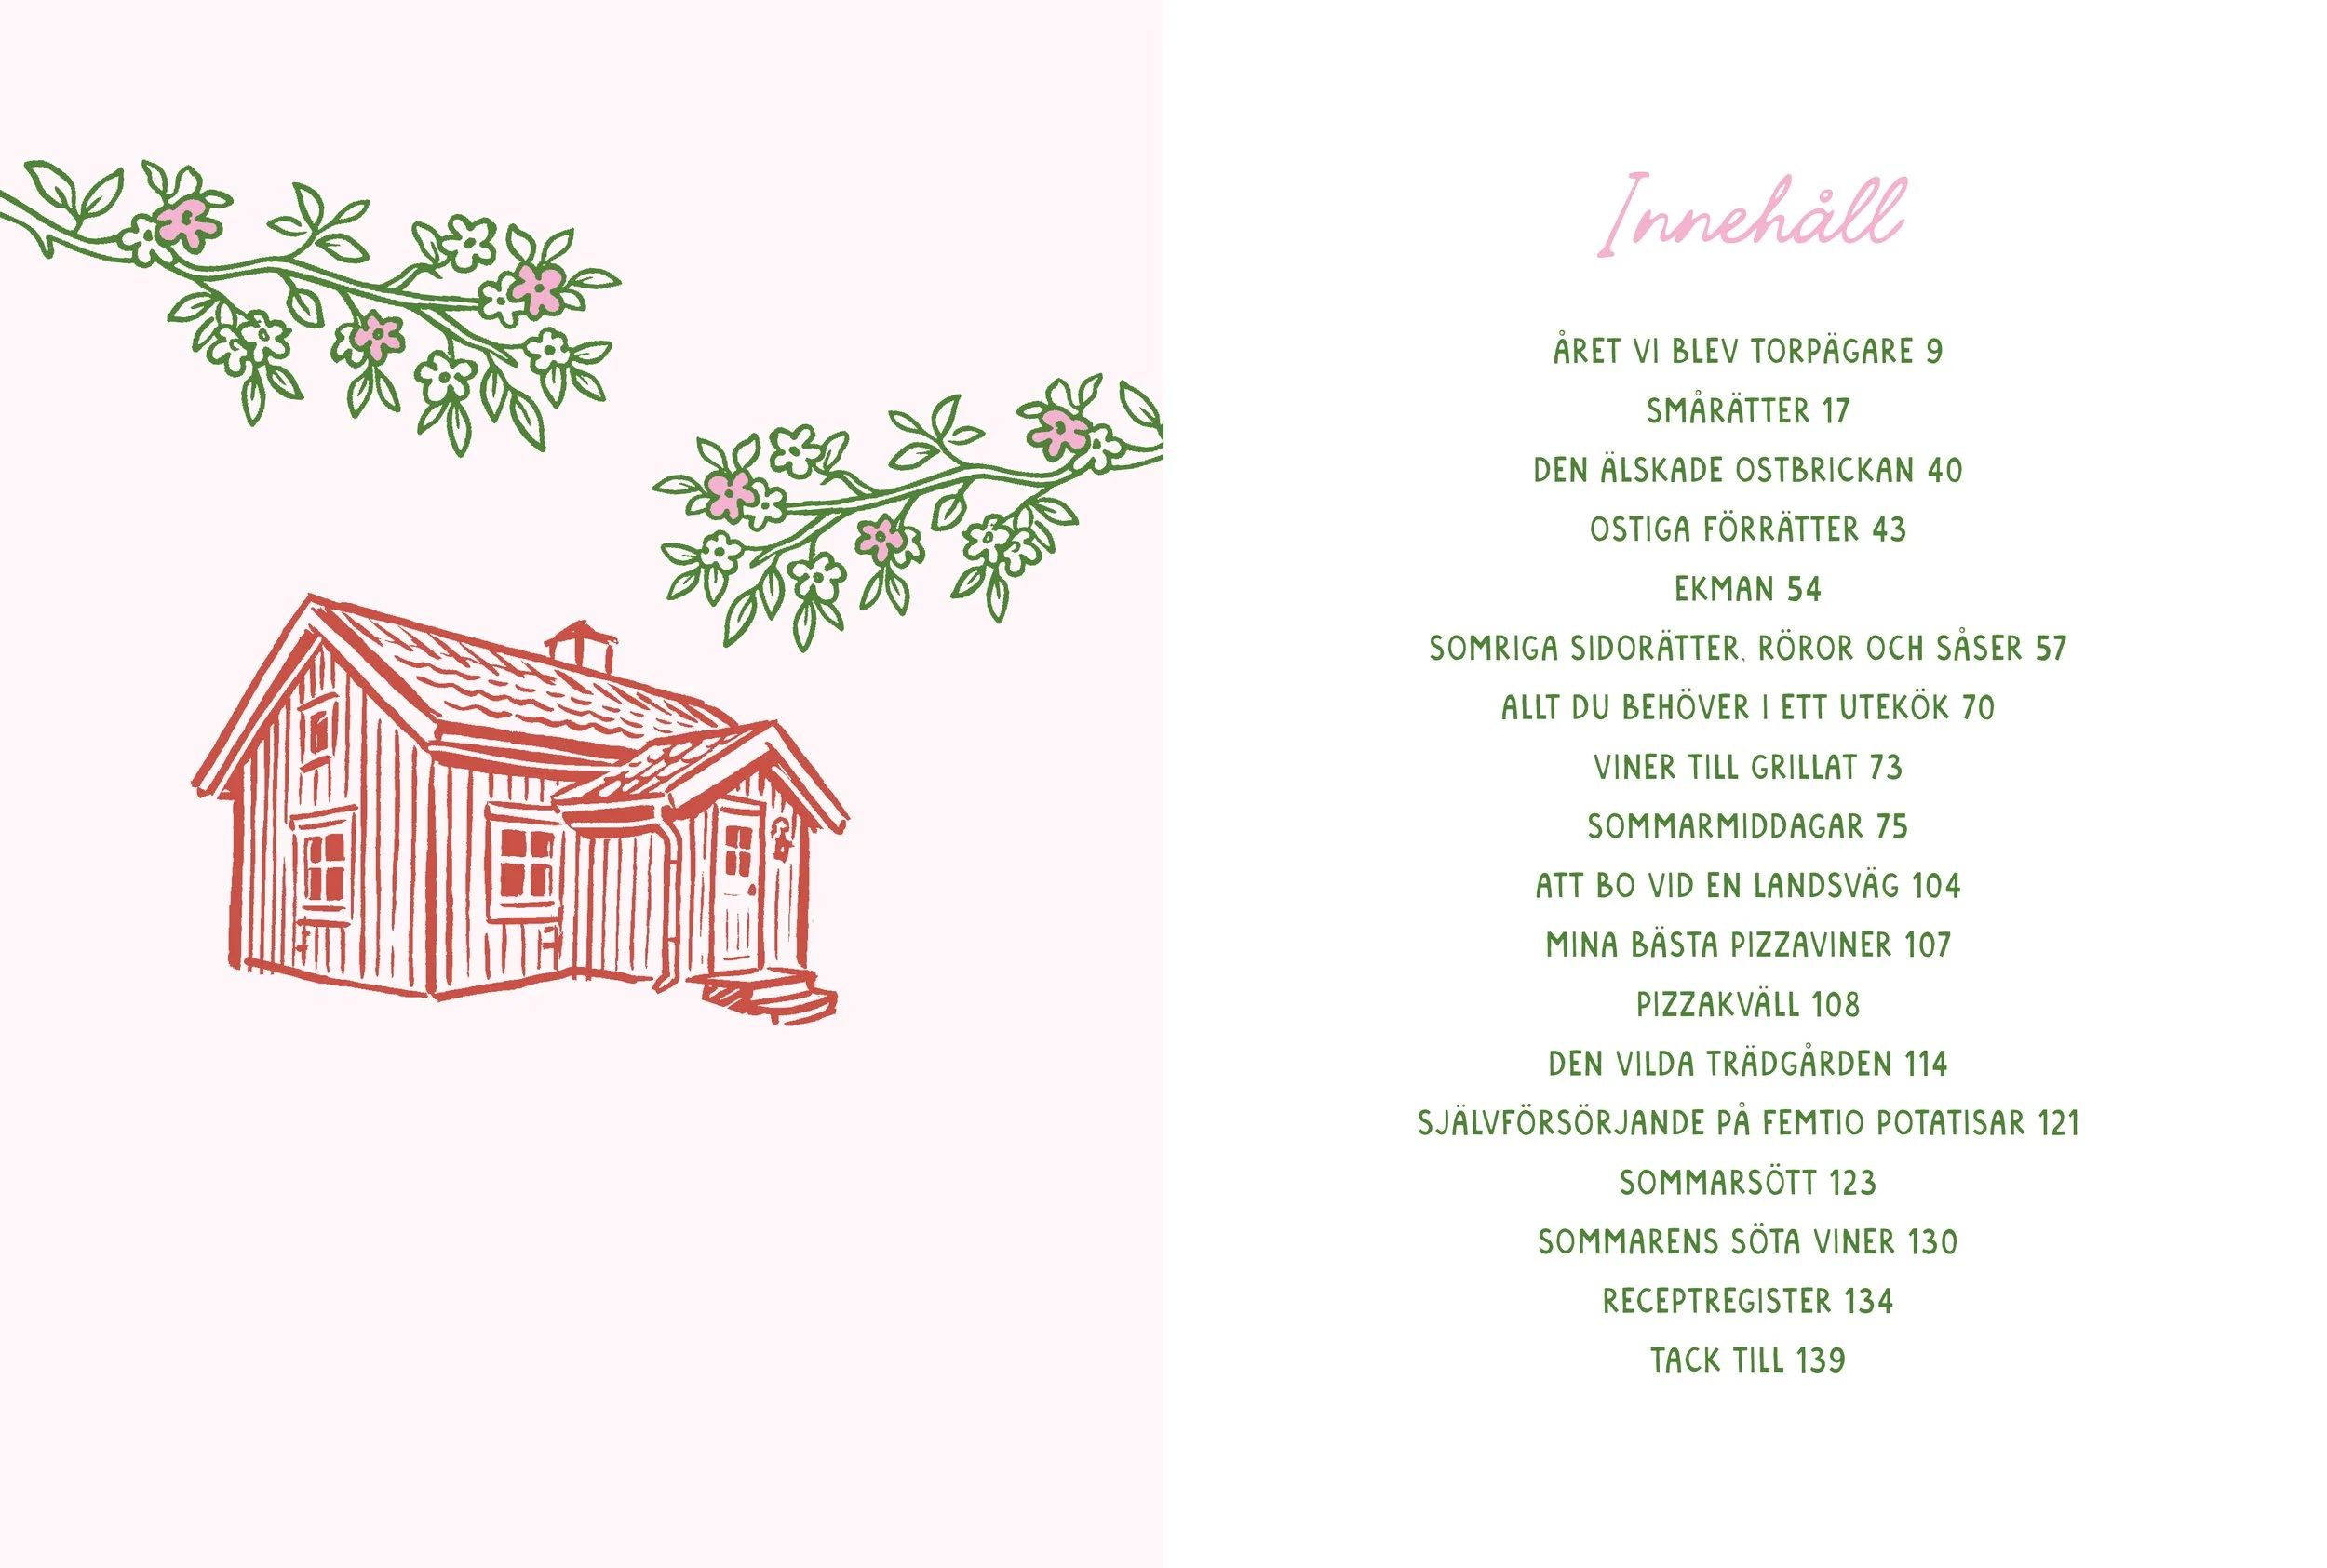 Innehåll
ÅRET VI BLEV TORPÄGARE 9
SMÅRÄTTER 17
DEN ÄLSKADE OSTBRICKAN 40
OSTIGA FÖRRÄTTER 43
EKMAN 54
SOMRIGA SIDORÄTTER, RÖROR OCH SÅSER 57
ALLT DU BEHÖVER I ETT UTEKÖK 70
VINER TILL GRILLAT 73
SOMMARMIDDAGAR 75
ATT BO VID EN LANDSVÄG 104
MINA BÄSTA PIZZAVINER 107
PIZZAKVÄLL 108
DEN VILDA TRÄDGÅRDEN 114
SJÄLVFÖRSÖRJANDE PÅ FEMTIO POTATISAR 121
SOMMARSÖTT 123
SOMMARENS SÖTA VINER 130
RECEPTREGISTER 134
TACK TILL 139